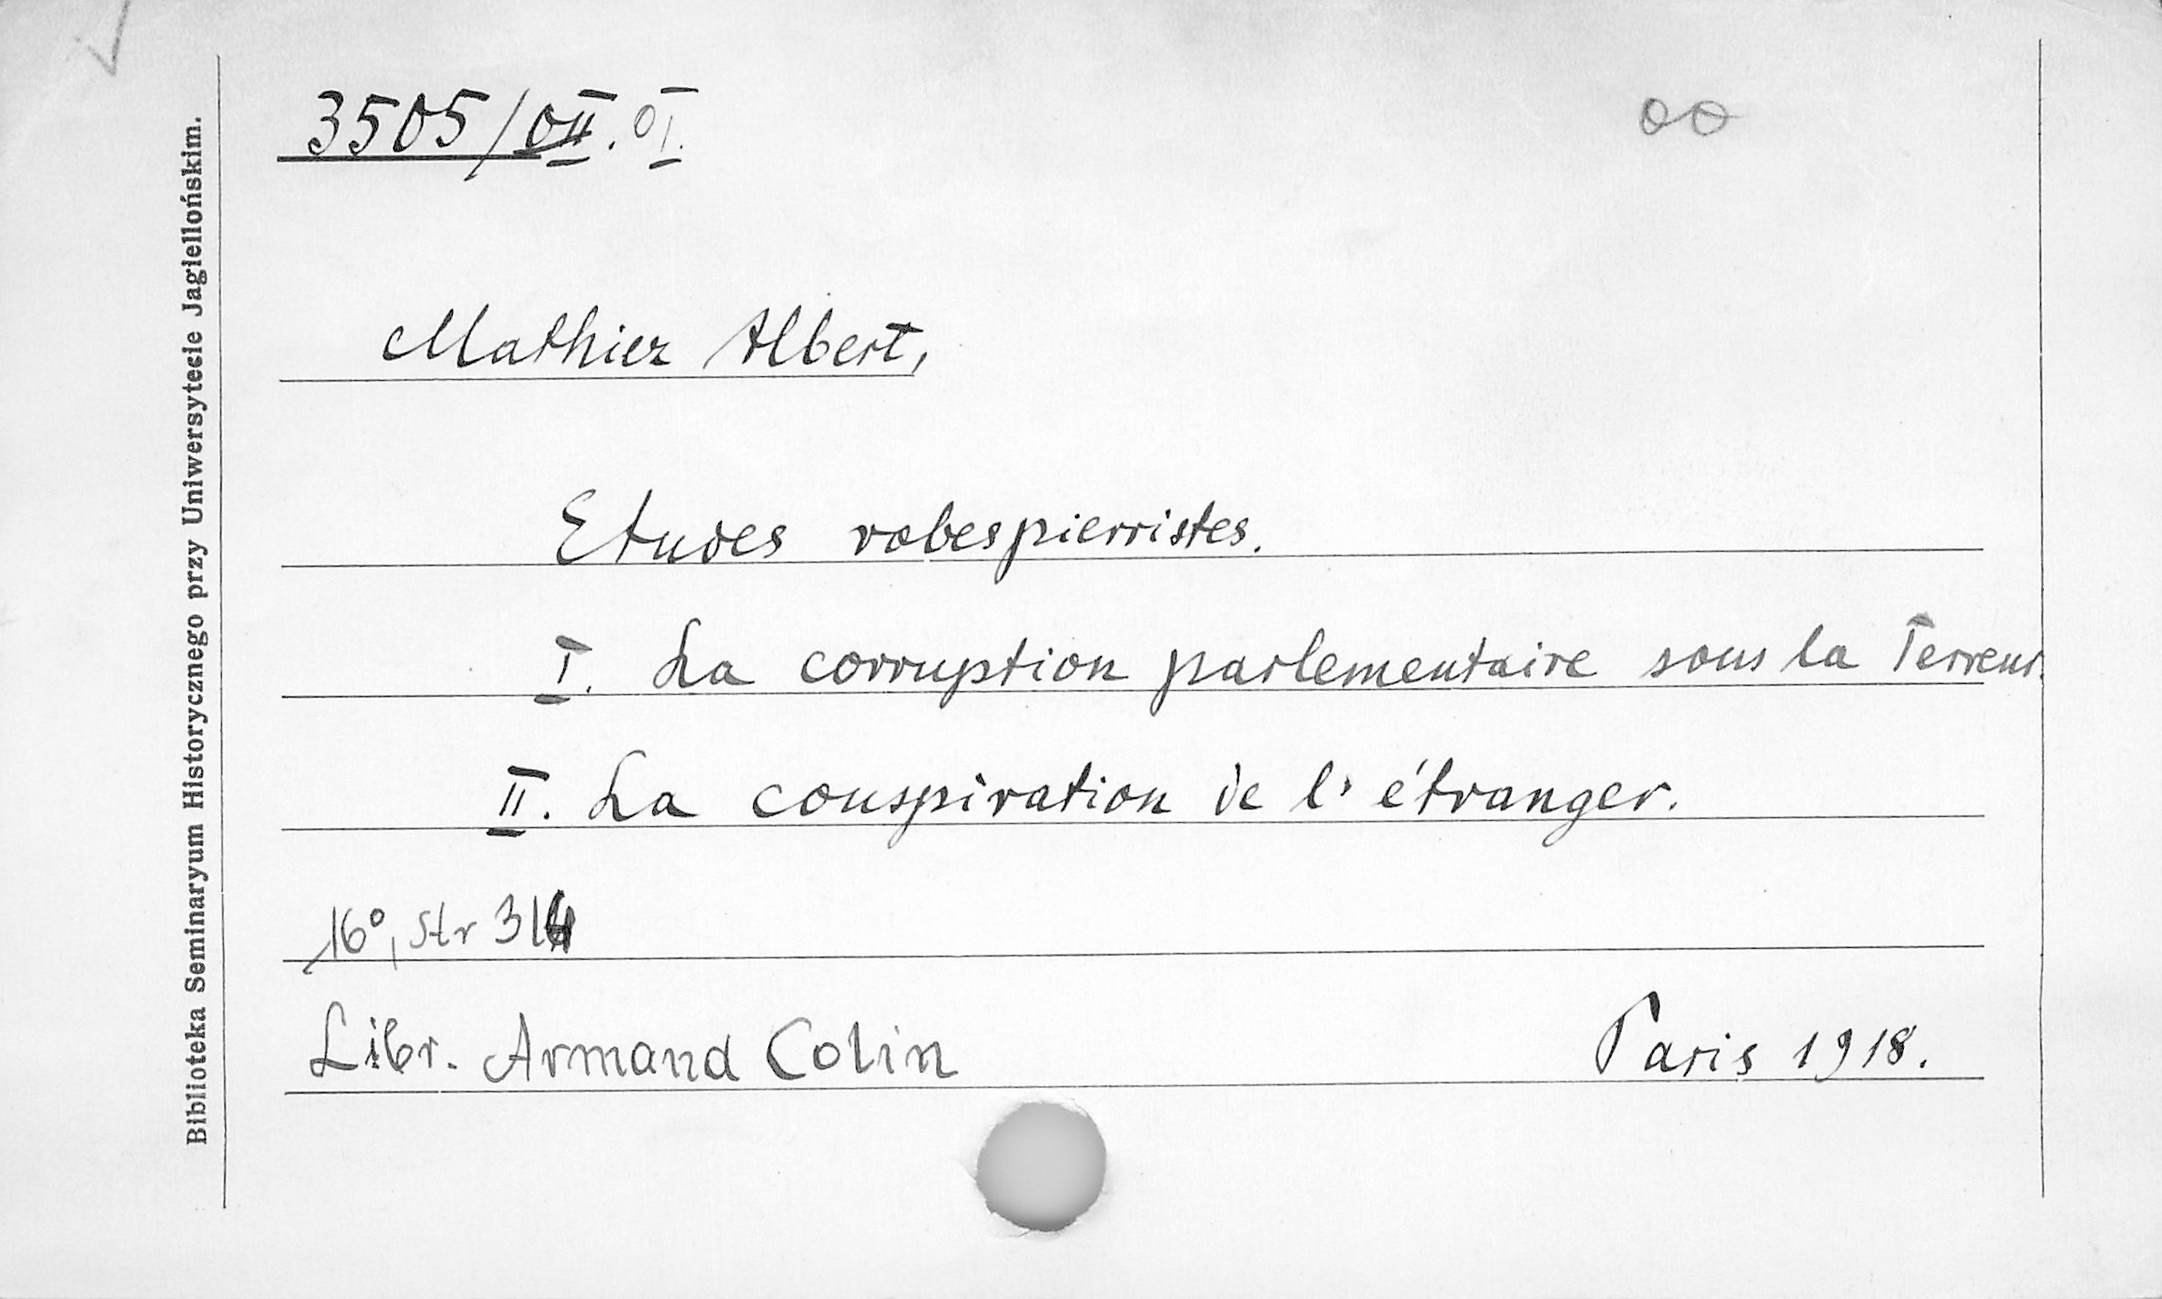 3505/OII. OI.
oo
Mathiez Albert,
Etudes robespierristes.
I. La corruption parlementaire sous la Terreur.
II. La conspiration de l'étranger.
16°, str
Libr. Armand Colin Paris 1918.
Biblioteka Seminaryum Historycznego przy Uniwersytecie Jagiellońskim.